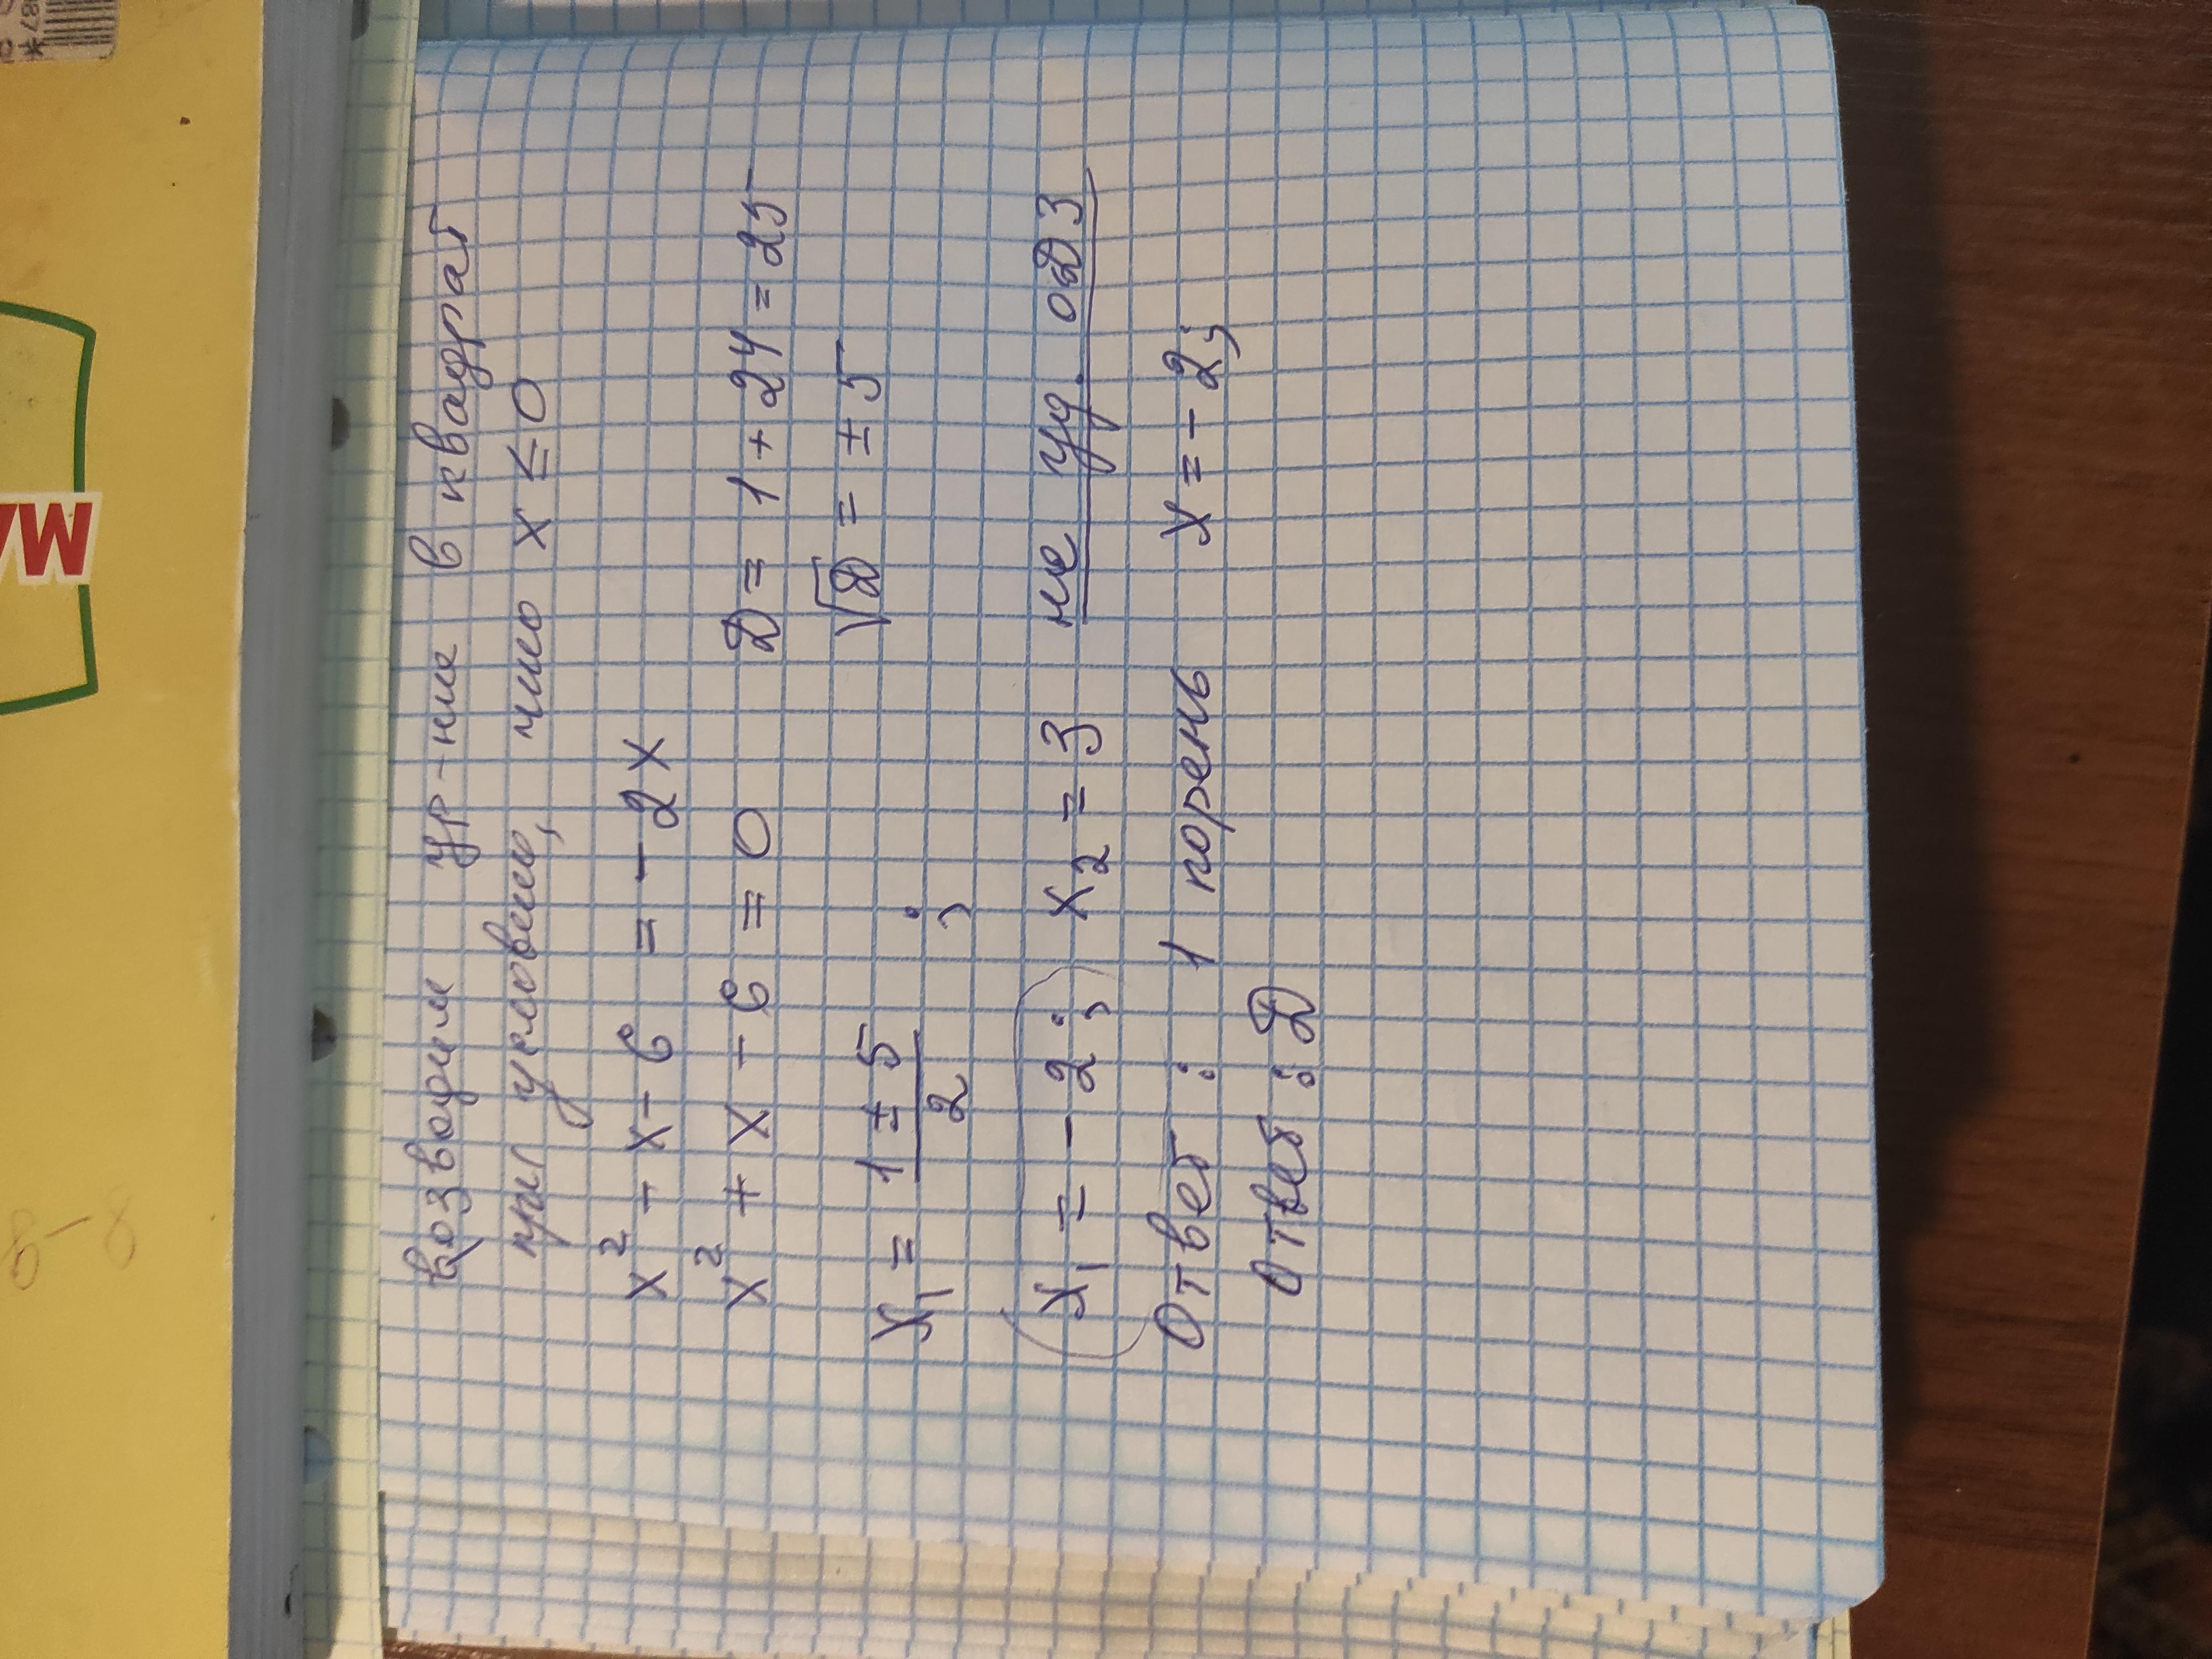 возводим ур-ние в квадрат
при условии, что x ≤ 0
x² - x - 6 = - 2x
x² + x - 6 = 0 D = 1 + 24 = 25
√D = ± 5
x₁ = 1 ± 5 / 2 ;
x₁ = - 2; x₂ = 3 не уд. ОДЗ
Ответ : 1 корень x = - 2;
Ответ : D
8-8